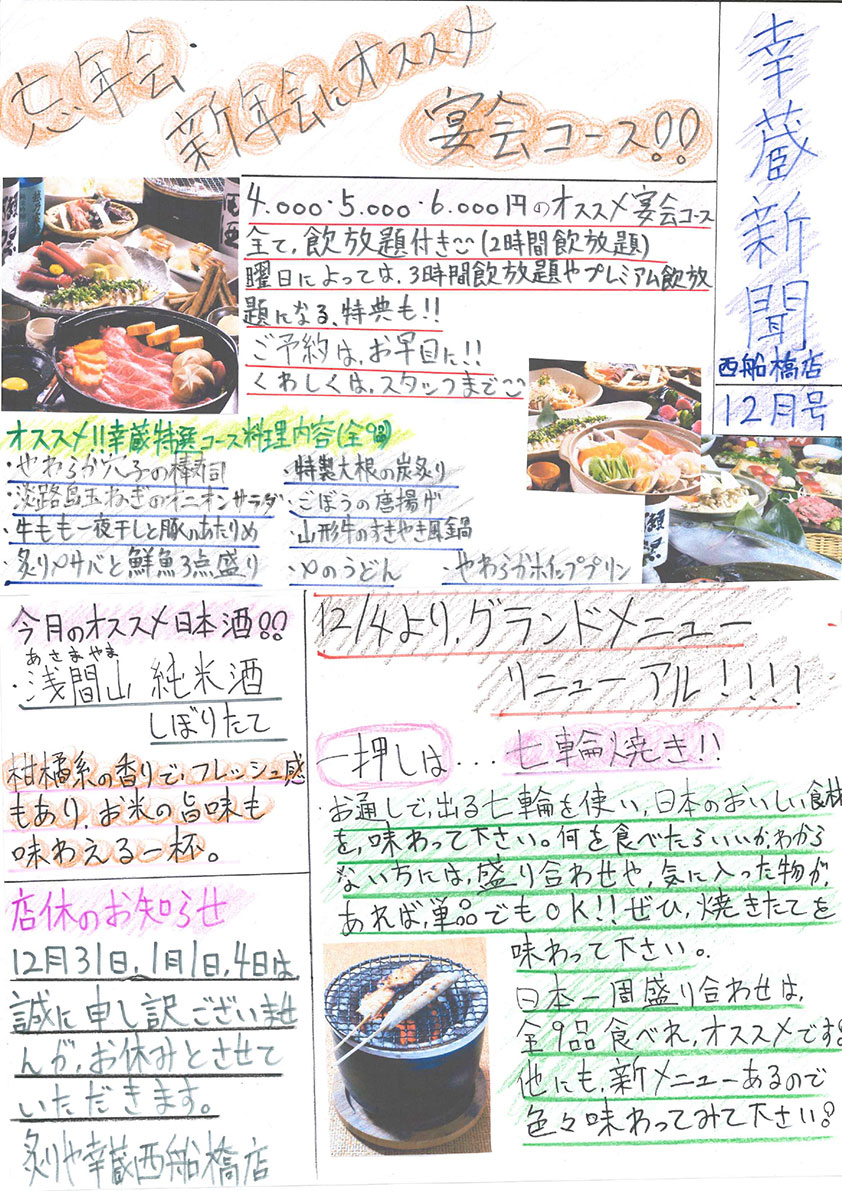 幸蔵新聞
西船橋店
12月号
忘年会・
新年会にオススメ
宴会コース!!
4.000・5.000・6.000円のオススメ宴会コース
全て、飲放題付き(2時間飲放題)
曜日によっては、3時間飲放題やプレミアム飲放
題になる、特典も!!
ご予約は、お早目に!!
くわしくは、スタッフまで
オススメ!!幸蔵特選コース料理内容(全9品)
・やわらか穴子の棒寿司
・淡路島玉ねぎのオニオンサラダ
・牛もも一夜干しと豚のあたりめ
・炙り〆サバと鮮魚3点盛り
・特製大根の炭炙り
・ごぼうの唐揚げ
・山形牛のすきやき風鍋
・〆のうどん
・やわらかホイッププリン
今月のオススメ日本酒!!
あさまやま
・浅間山 純米酒
しぼりたて
柑橘系の香りで、フレッシュ感
もあり、お米の旨味も
味わえる一杯。
店休のお知らせ
12月31日、1月1日、4日は、
誠に申し訳ございませ
んが、お休みとさせて
いただきます。
炙りや幸蔵西船橋店
12/4より、グランドメニュー
リニューアル!!!!
一押しは...七輪焼き!!
・お通しで、出る七輪を使い、日本のおいしい食材
を、味わって下さい。何を食べたらいいか、わから
ない方には、盛り合わせや、気に入った物が、
あれば、単品でもOK!!ぜひ、焼きたてを
味わって下さい。
日本一周盛り合わせは、
全9品食べれ、オススメです
他にも、新メニューあるので
色々味わってみて下さい!